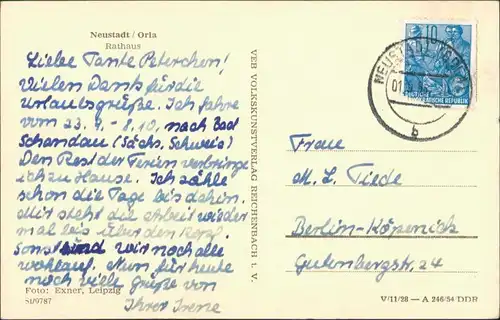 Neustadt / Orla
Rathaus
Liebe Tante Peterchen!
Vielen Dank für die
Urlaubsgrüße. Ich fahre
vom 23.9. - 8.10. nach Bad
Schandau (Sächs. Schweiz)
Den Rest der Ferien verbringe
ich zu Hause. Ich zähle
schon die Tage bis dahin.
Mir steht die Arbeit wieder
mal bis über den Kopf.
Sonst sind wir noch alle
wohlauf. Nun für heute
noch viele Grüße von
Ihrer Irene
Foto: Exner, Leipzig
St/9787
VEB VOLKSKUNSTVERLAG REICHENBACH i. V.
10
DEUTSCHE
DEMOKRATISCHE REPUBLIK
NEUSTADT (ORLA)
b
Frau
M. L. Tiede
Berlin-Köpenick
Gutenbergstr. 24
V/11/28 — A 246/54 DDR